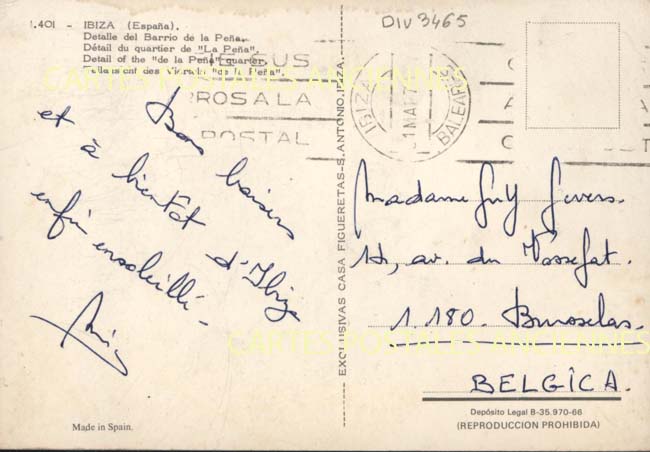 1.401 - IBIZA (España).
Detalle del Barrio de la Peña.
Détail du quartier de "La Peña".
Detail of the "de la Peña" quarter.
"de la Peña".
CARTES POSTALES ANCIENNES
DIV 3465
ROSALA
POSTAL
IBIZA
BALEARES
Bons baisers
et à bientôt d'Ibiza
enfin ensoleillé.
EXCLUSIVAS CASA FIGUERETAS-S. ANTONIO, IBIZA.
Madame Guy
14, av. du
1.180. Bruselas.
BELGÎCA.
CARTES POSTALES ANCIENNES
Depósito Legal B-35.970-66
(REPRODUCCION PROHIBIDA)
Made in Spain.